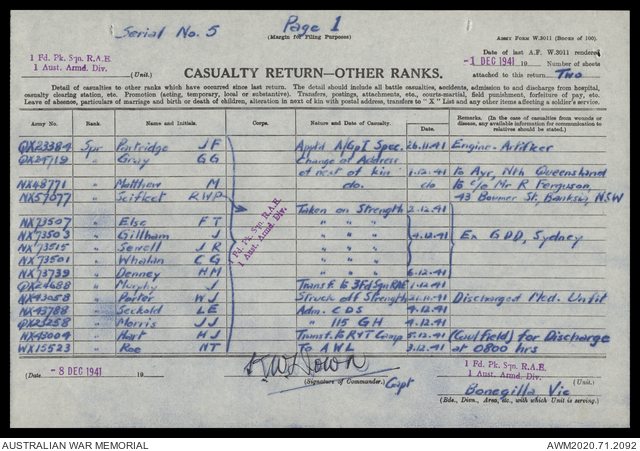 Serial No. 5
Page 1
(Margin for Filing Purposes)
ARMY FORM W.3011 (Books of 100).
1 Fd. Pk. Sqn. R.A.E.
1 Aust. Armd. Div.
(Unit.)
Date of last A.F. W.3011 rendered
-1 DEC 1941 19 Number of sheets
attached to this return Two
CASUALTY RETURN—OTHER RANKS.
Detail of casualties to other ranks which have occurred since last return. The detail should include all battle casualties, accidents, admission to and discharge from hospital,
casualty clearing station, etc. Promotion (acting, temporary, local or substantive). Transfers, postings, attachments, etc., courts-martial, field punishment, forfeiture of pay, etc.
Leave of absence, particulars of marriage and birth or death of children, alteration in next of kin with postal address, transfers to "X" List and any other items affecting a soldier's service.
Army No. Rank. Name and Initials. Corps. Nature and Date of Casualty. Date. Remarks. (In the case of casualties from wounds or disease, any available information for communication to relatives should be stated.)
QX23384 Spr Partridge J F App'd A/Gp I Spec. 26.11.41 Engine-Artificer
QX24719 " Gray G G Change of Address
of next of kin 1.12.41 To Ayr, Nth Queensland
NX48771 " Matthew M do. do To c/o Mr R Ferguson,
NX57077 " Scifleet R W P 43 Boumer St, Banksia, NSW
Taken on Strength 2.12.41
NX73507 " Else F T " " "
NX73503 " Gillham J " " " 4.12.41 Ex GDD, Sydney
NX73515 " Sewell J R " " "
NX73501 " Whalan C G " " "
NX73739 " Denney H M " " " 6.12.41
QX24688 " Murphy J Transf. to 3 Fd Sqn RAE 1.12.41
NX43058 " Porter W J Struck off Strength 21.11.41 Discharged Med. Unfit
NX43788 " Seckold L E Adm. C D S 4.12.41
QX23258 " Morris J J " 115 G H 4.12.41
NX43004 " Hart H J Transf. to R&T Camp 5.12.41 (Caulfield) for Discharge
WX15523 " Rae N T To A W L 3.12.41 at 0800 hrs
1 Fd. Pk. Sqn. R.A.E.
1 Aust. Armd. Div.
(Date - 8 DEC 1941 19 )
(Signature of Commander.) Capt
1 Fd. Pk. Sqn. R.A.E.
1 Aust. Armd. Div.
(Unit.)
Bonegilla Vic
(Bde., Divn., Area, etc., with which Unit is serving.)
AUSTRALIAN WAR MEMORIAL
AWM2020.71.2092